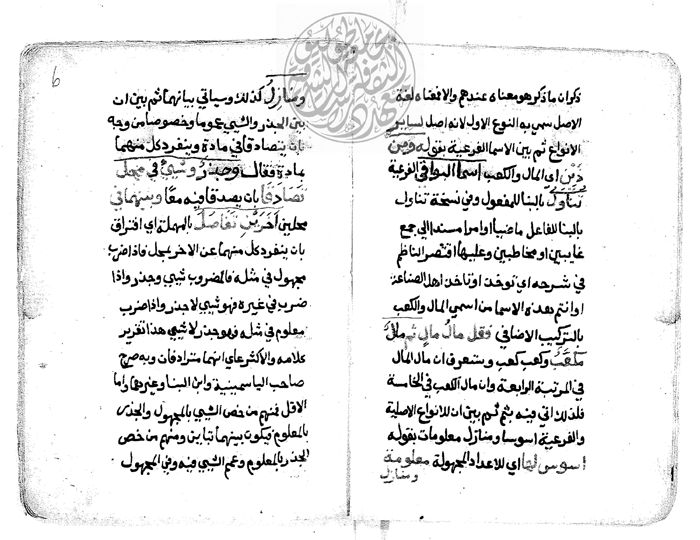 ذكران ما ذكر هو معناه عندهم والا فمعناه لغة
الاصل سمي به النوع الاول لانه اصل لساير
الانواع ثم بين الاسما الفرعية بقوله ومن
ذين اي المال والكعب اسما البواقي الفرعية
تناول بالبنا للمفعول وفي نسخة تناول
بالبنا للفاعل ماضيا او امرا مسندا الي جمع
غايبين او مخاطبين وعليها اقتصر الناظم
في شرحه اي توخذ او تاخذ اهل الصناعة
او انتم هذه الاسما من اسمي المال والكعب
بالتركيب الاضافي فقل مال مال ثم مال
مكعب وكعب كعب وستعرف ان مال المال
في المرتبة الرابعة وان مال الكعب في الخامسة
فلذلك اتي فيه بثم ثم بين ان للانواع الاصلية
والفرعية اسوسا ومنازل معلومات بقوله
اسوس لها اي للاعداد المجهولة معلومة
ومنازل
6
ومنازل كذلك وسياتي بيانهما ثم بين ان
بين الجذر والشيي عموما وخصوصا من وجه
بان يتصادقا في مادة وينفرد كل منهما
بمادة فقال وجذر وشيي في محل
تصادقا بان يصدقا فيه معا وبينهما في
محلين اخرين تفاصل بالمهملة اي افتراق
بان ينفرد كل منهما عن الاخر بمحل فاذا ضرب
مجهول في مثله فالمضروب شيي وجذر واذا
ضرب في غيره فهو شيي لا جذر واذا ضرب
معلوم في مثله فهو جذر لا شيي هذا تقرير
كلامه والاكثر علي انهما مترادفان وبه صرح
صاحب الياسمينية وابن البنا وغيرهما واما
الاقل فمنهم من خص الشيي بالمجهول والجذر
بالمعلوم فيكون بينهما تباين ومنهم من خص
الجذر بالمعلوم وعمم الشيي فيه وفي المجهول